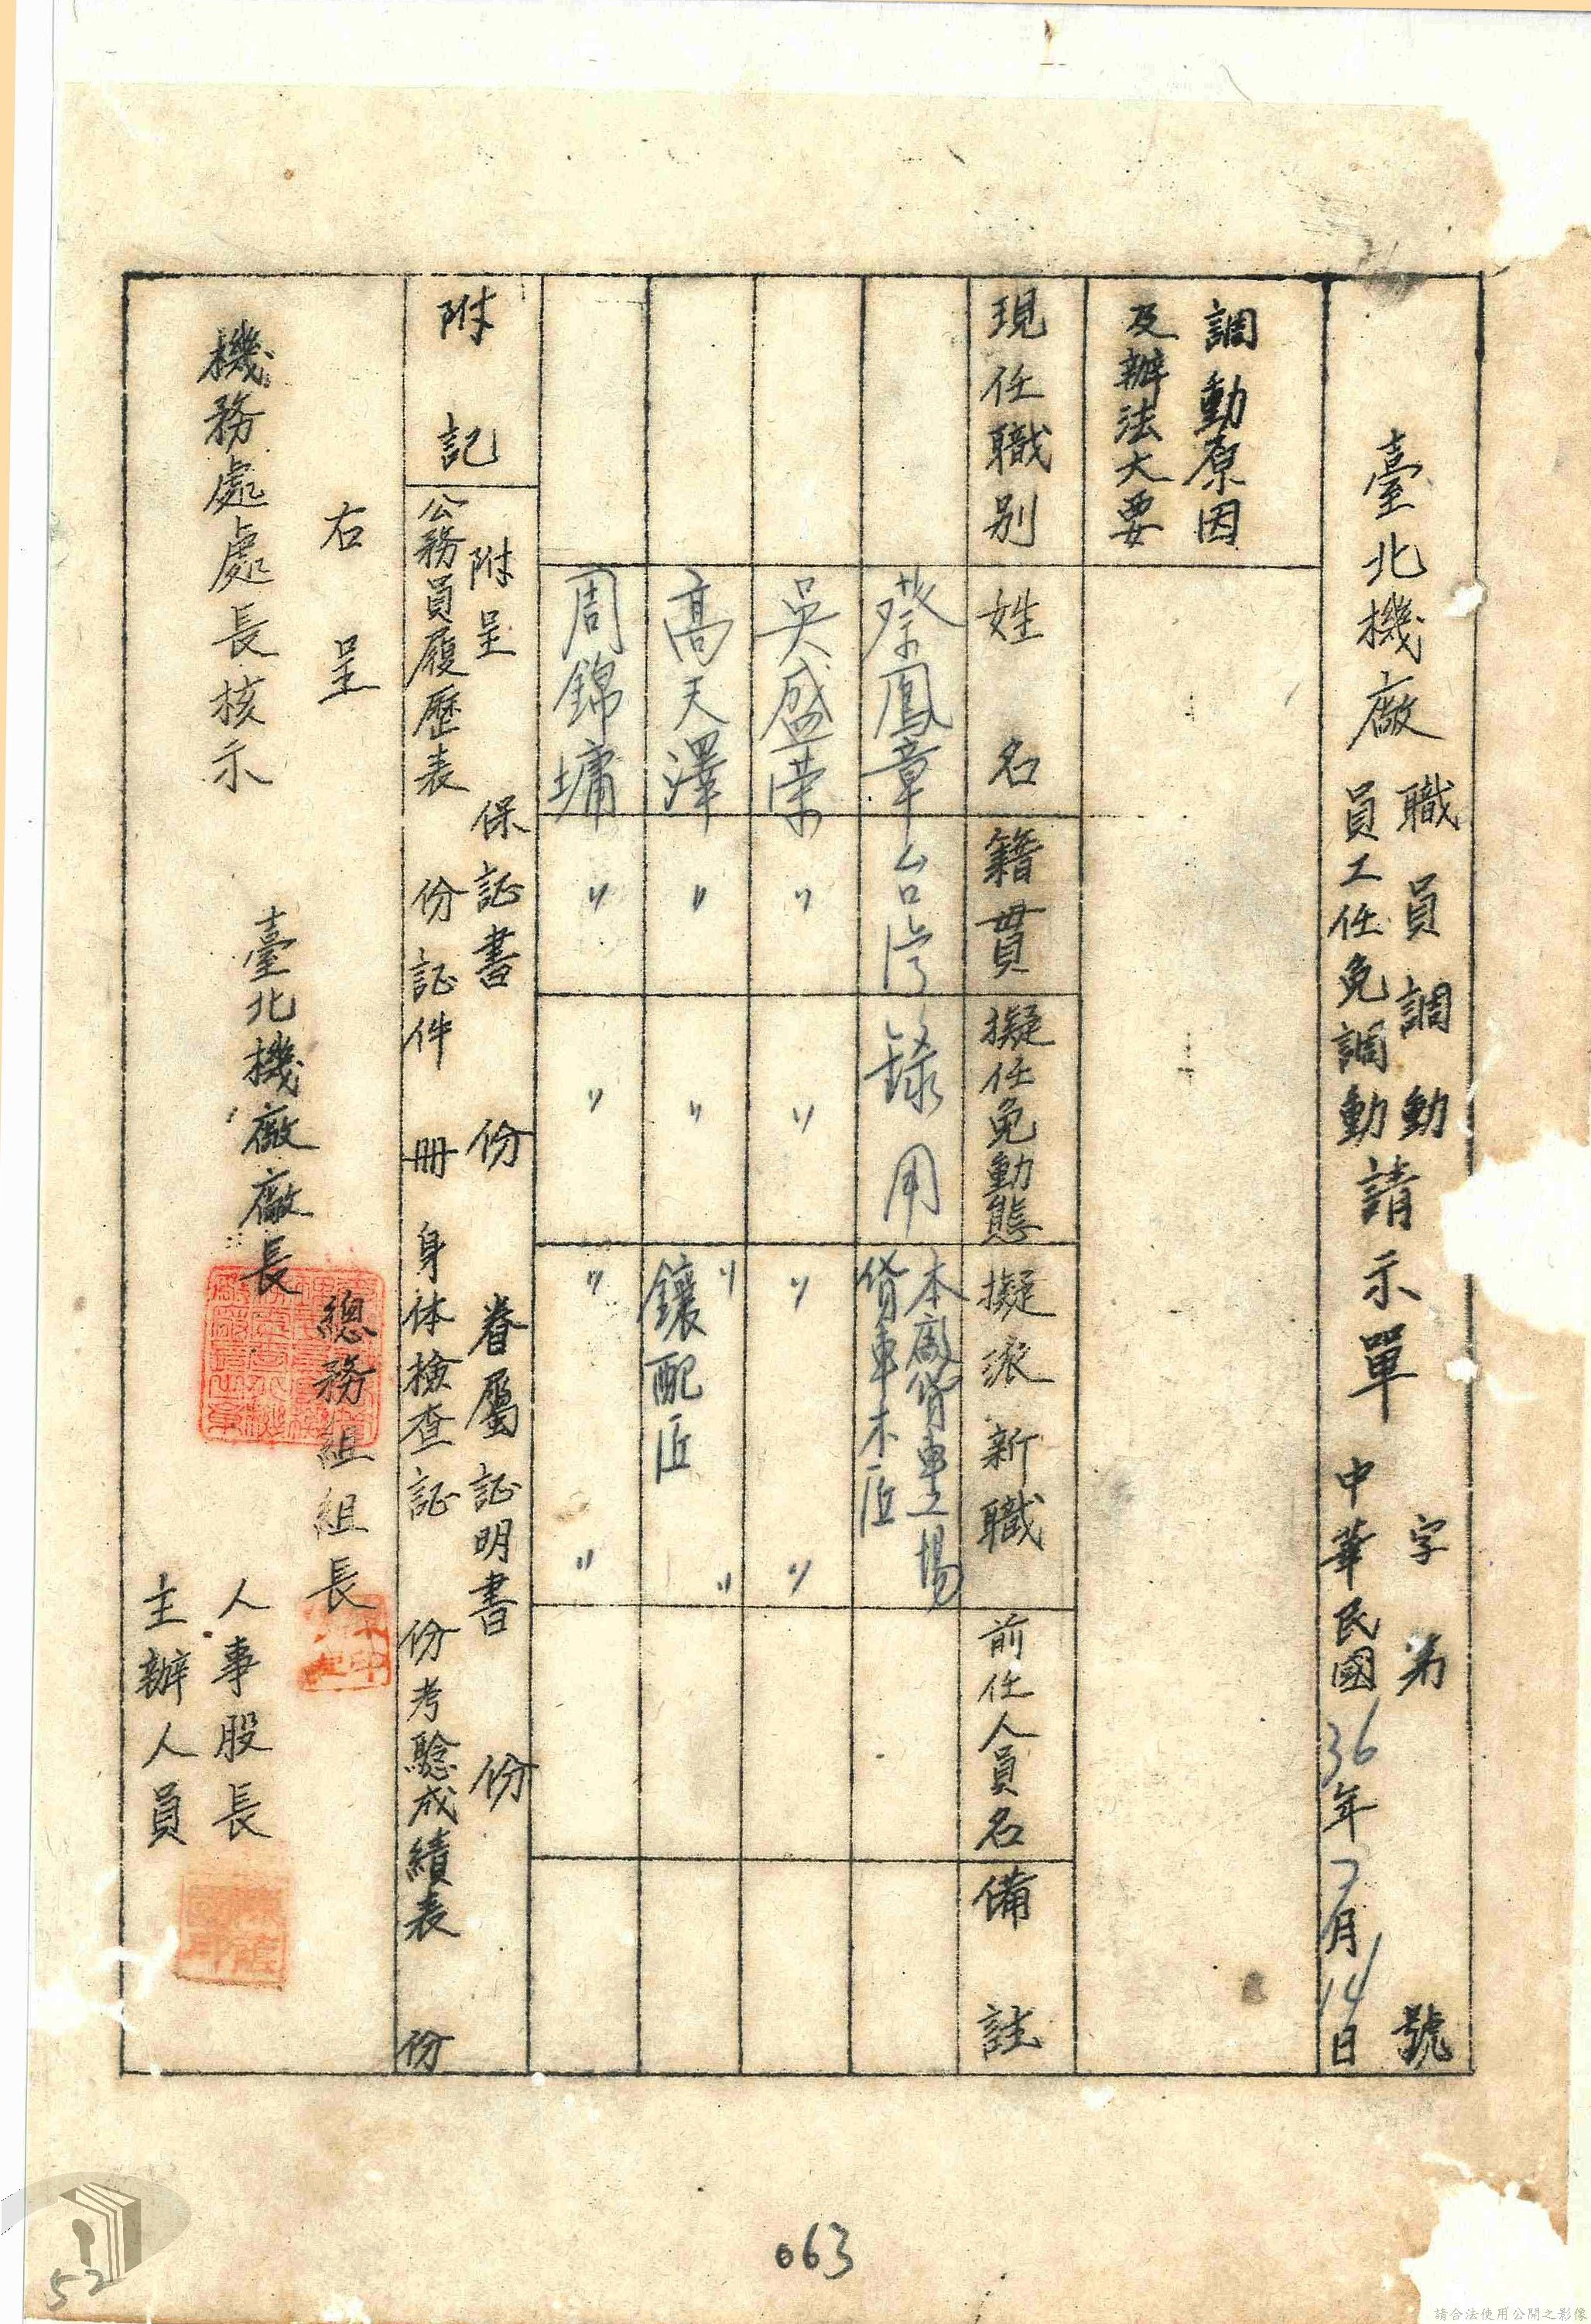 臺北機廠
職員調動
員工任免調動
請示單
字第 號
中華民國36年7月14日
調動原因
及辦法大要
現任職別
姓名
籍貫
擬任免動態
擬派新職
前任人員名
備註
蔡鳳章
台湾
錄用
本廠貨車工場
貨車木匠
吳盛荣
〃
〃
〃
〃
高天澤
〃
〃
〃
〃
鑲配匠
周錦墉
〃
〃
〃
〃
附記
附呈 保証書 份 眷屬証明書 份
公務員履歷表 份証件 冊 身体檢查証 份考驗成績表 份
右呈
機務處處長核示
臺北機廠廠長
總務組組長
人事股長
主辦人員
063
52
請合法使用公開之影像